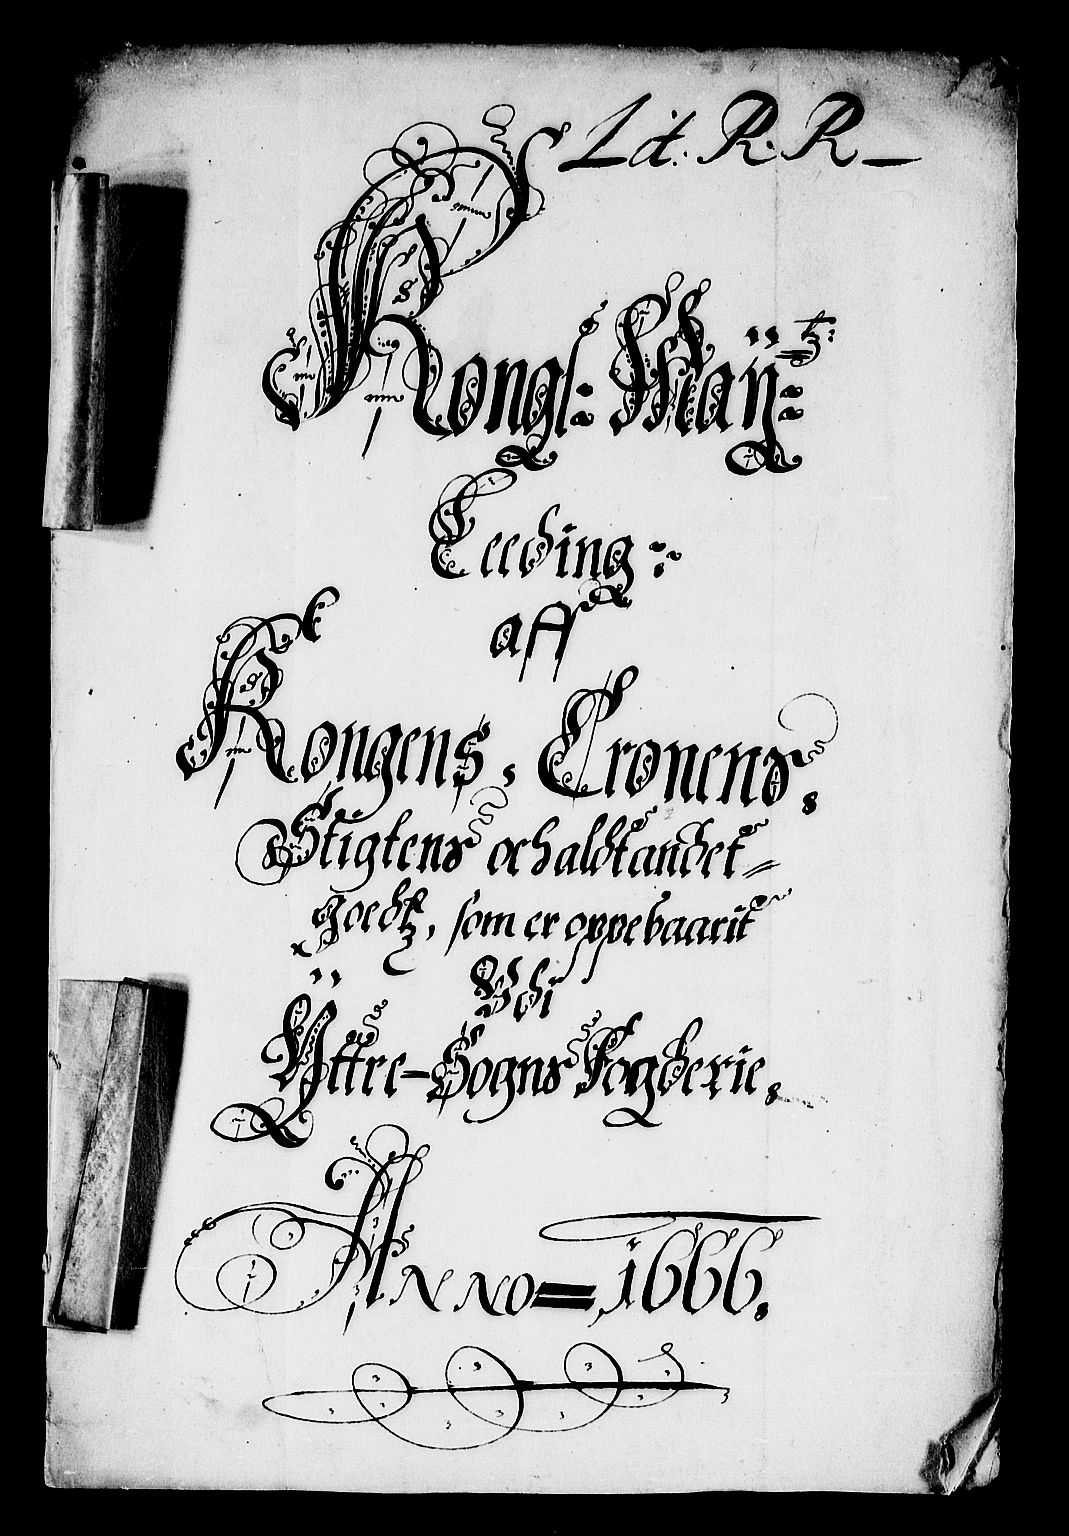 Lit: R. R
Kongl: Maÿ:tz:
Teeding:
aff
Kongens, Cronens,
Stigtens och aldt andet
goedtz, som er oppebaarit
Udi
Ÿttre-Sogns Fogderie,
Anno = 1666.